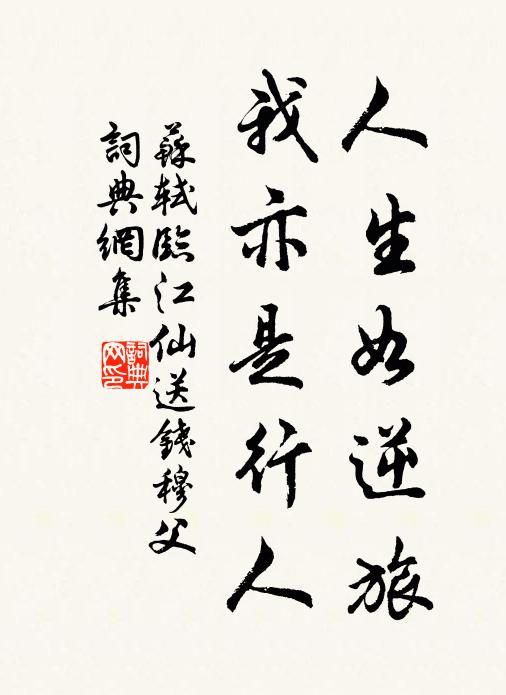 人生如逆旅
我亦是行人
蘇軾臨江仙送錢穆父
詞典網集
詞典網印